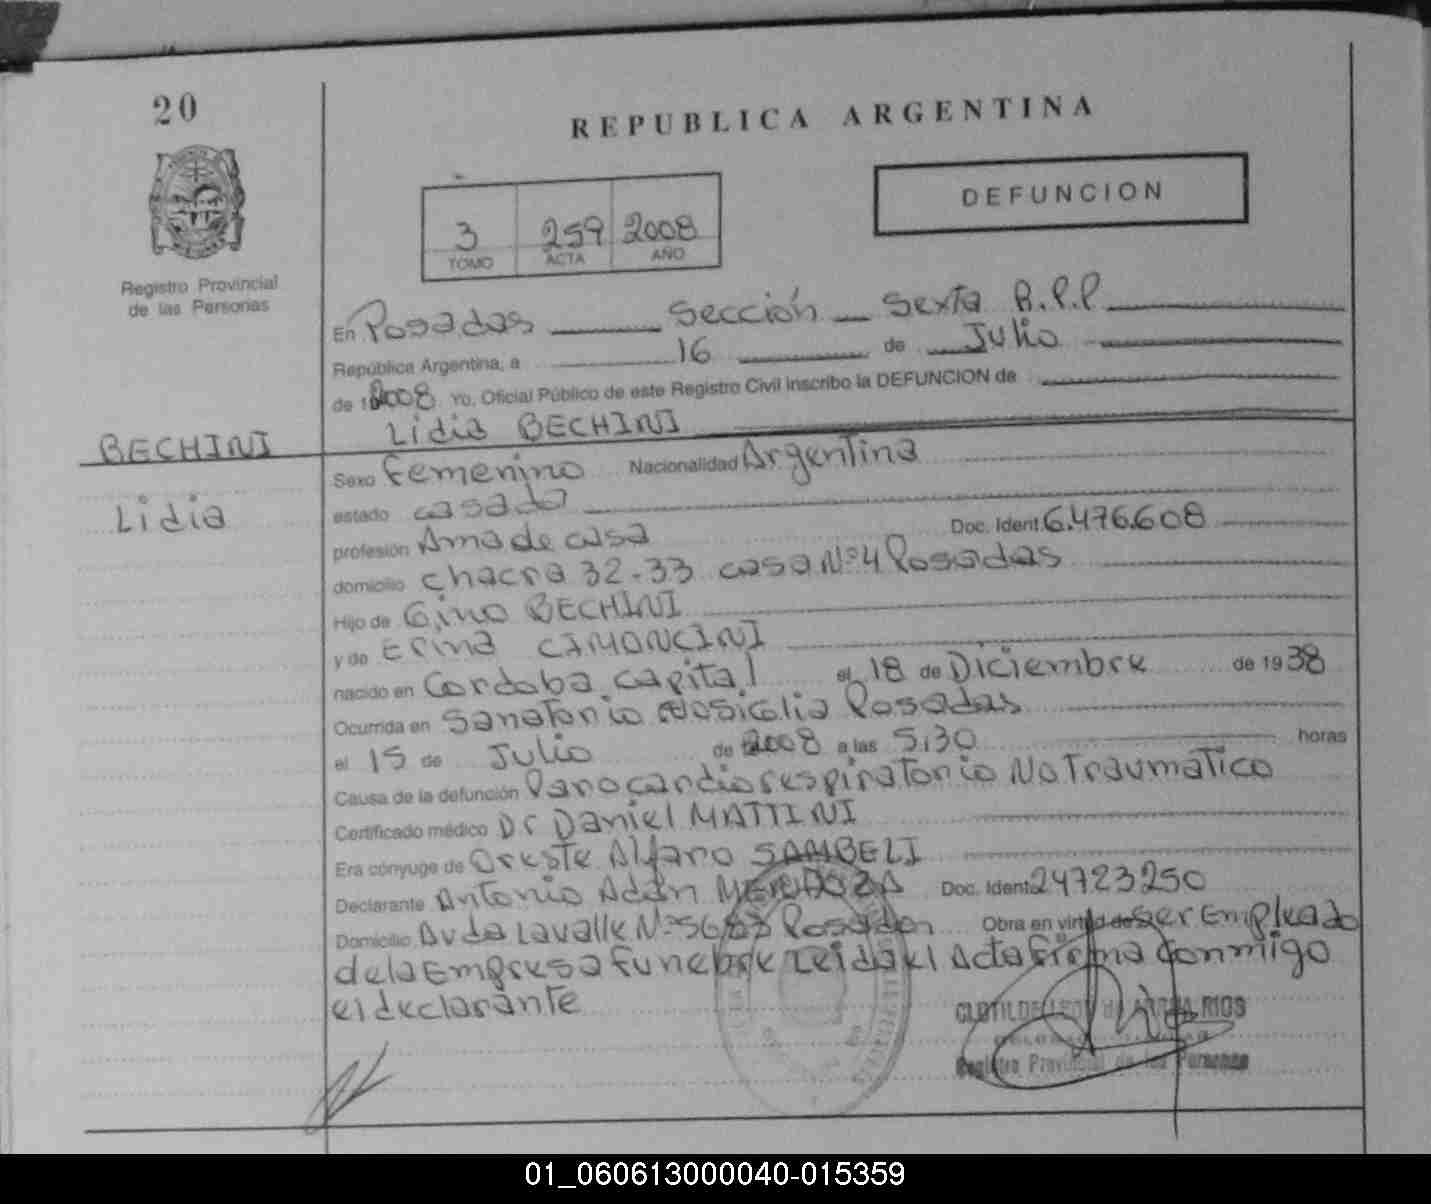 20
REPUBLICA ARGENTINA
DEFUNCION
3 259 2008
TOMO ACTA AÑO
Registro Provincial
de las Personas
En Posadas Sección Sexta R.P.P
República Argentina, a 16 de Julio
de 2008 Yo, Oficial Público de este Registro Civil inscribo la DEFUNCION de
Lidia BECHINI
BECHINI
Lidia
Sexo Femenino Nacionalidad Argentina
estado casada
profesión Ama de casa Doc. Ident. 6.476.608
domicilio chacra 32-33 casa Nº4 Posadas
Hijo de Gino BECHINI
y de Erina CAMONCINI
nacido en Cordoba, capital el 18 de Diciembre de 1938
Ocurrida en Sanatorio Posadas
el 15 de Julio de 2008 a las 5,30 horas
Causa de la defunción Parocardiorespiratorio No Traumatico
Certificado médico Dr Daniel MATTINI
Era cónyuge de Oreste Alfaro SAMBELI
Declarante Antonio Adán MENDOZA Doc. Ident. 24723250
Domicilio Avda Lavalle Nº Posadas Obra en virtud de ser Empleado
de la Empresa funebre Leida el Acta firma conmigo
el declarante
RIOS
Registro Provincial de las Personas
01_060613000040-015359